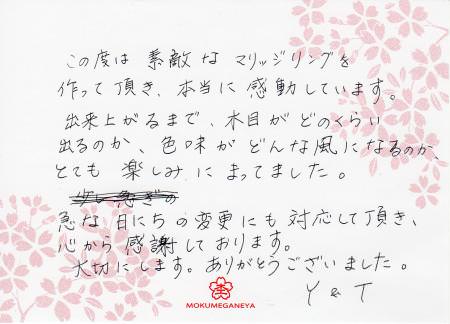 この度は 素敵な マリッジリングを
作って頂き、本当に 感動しています。
出来上がるまで、木目が どのくらい
出るのか、色味が どんな風に なるのか、
とても 楽しみ に まってました。
急な 日にちの 変更にも 対応して頂き、
心から 感謝しております。
大切にします。ありがとうございました。
Y & T
MOKUMEGANEYA